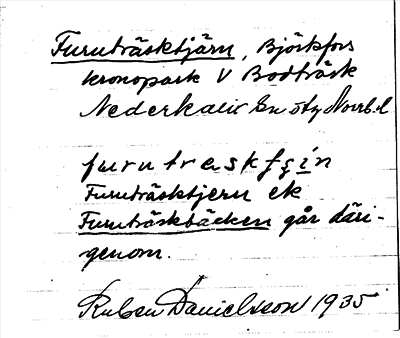 Furuträsktjärn, Björkfors
kronopark V Bodträsk
Nederkalix sn öty Norrb. l
furutraskfɕin
Furuträsktjern ek
Furuträskbäcken går däri-
genom.
Ruben Danielsson 1935